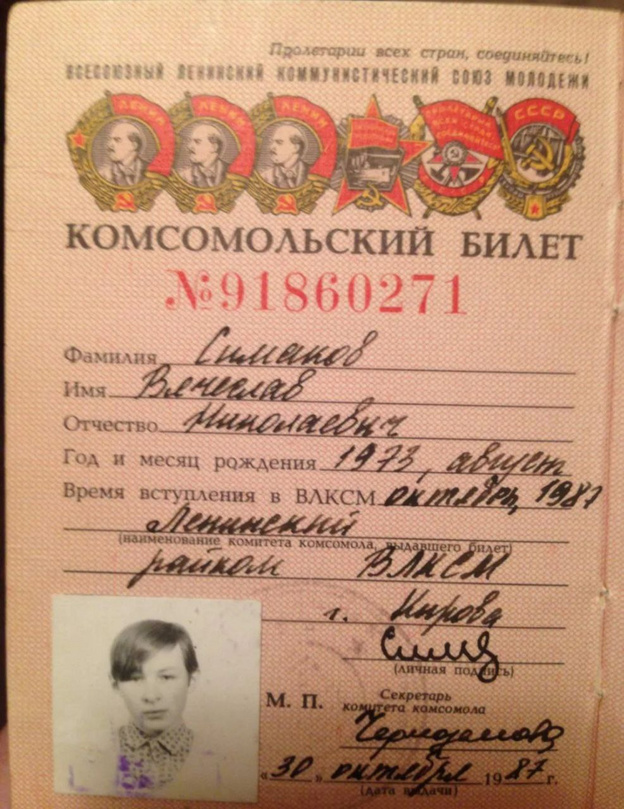 Пролетарии всех стран, соединяйтесь!
ВСЕСОЮЗНЫЙ ЛЕНИНСКИЙ КОММУНИСТИЧЕСКИЙ СОЮЗ МОЛОДЕЖИ
ЛЕНИН ЛЕНИН ЛЕНИН СССР
КОМСОМОЛЬСКИЙ БИЛЕТ
№91860271
Фамилия Симаков
Имя Вячеслав
Отчество Николаевич
Год и месяц рождения 1973, август
Время вступления в ВЛКСМ октябрь, 1987
Ленинский
(наименование комитета комсомола, выдавшего билет)
райком ВЛКСМ
г. Кирова
(личная подпись)
М. П. Секретарь
комитета комсомола
«30» октября 1987 г.
(дата выдачи)